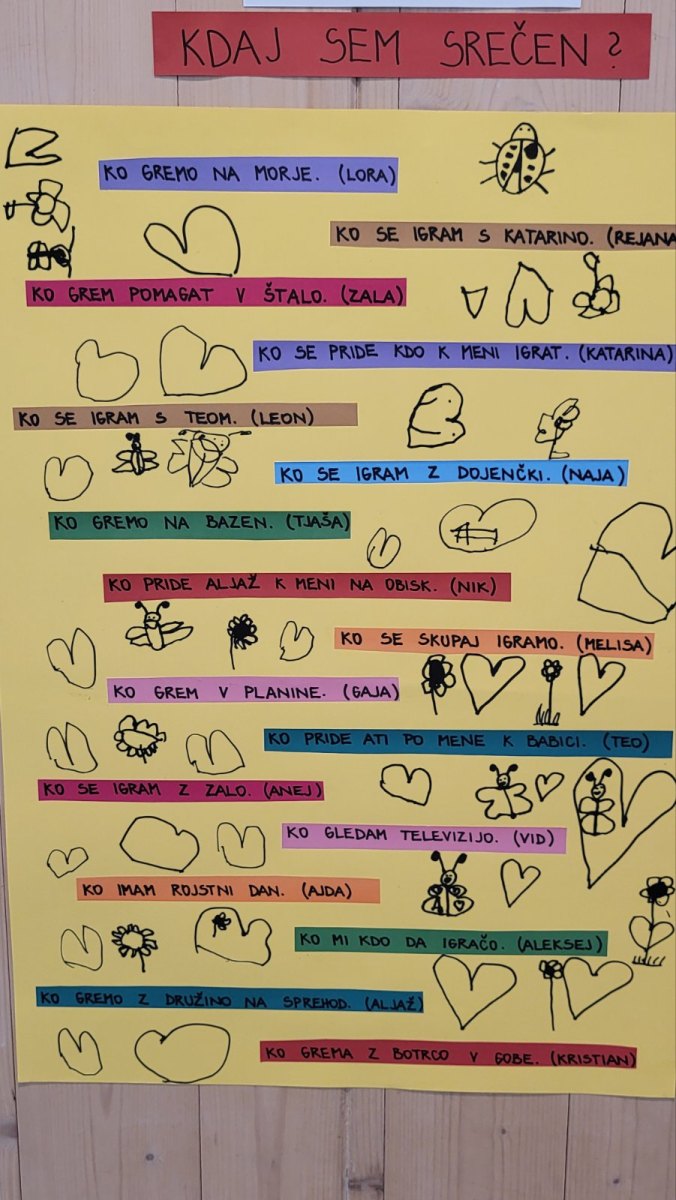 KDAJ SEM SREČEN?
KO GREMO NA MORJE. (LORA)
KO SE IGRAM S KATARINO. (REJANA
KO GREM POMAGAT V ŠTALO. (ZALA)
KO SE PRIDE KDO K MENI IGRAT. (KATARINA)
KO SE IGRAM S TEOM. (LEON)
KO SE IGRAM Z DOJENČKI. (NAJA)
KO GREMO NA BAZEN. (TJAŠA)
KO PRIDE ALJAŽ K MENI NA OBISK. (NIK)
KO SE SKUPAJ IGRAMO. (MELISA)
KO GREM V PLANINE. (GAJA)
KO PRIDE ATI PO MENE K BABICI. (TEO)
KO SE IGRAM Z ZALO. (ANEJ)
KO GLEDAM TELEVIZIJO. (VID)
KO IMAM ROJSTNI DAN. (AJDA)
KO MI KDO DA IGRAČO. (ALEKSEJ)
KO GREMO Z DRUŽINO NA SPREHOD. (ALJAŽ)
KO GREMA Z BOTRCO V GOBE. (KRISTIAN)